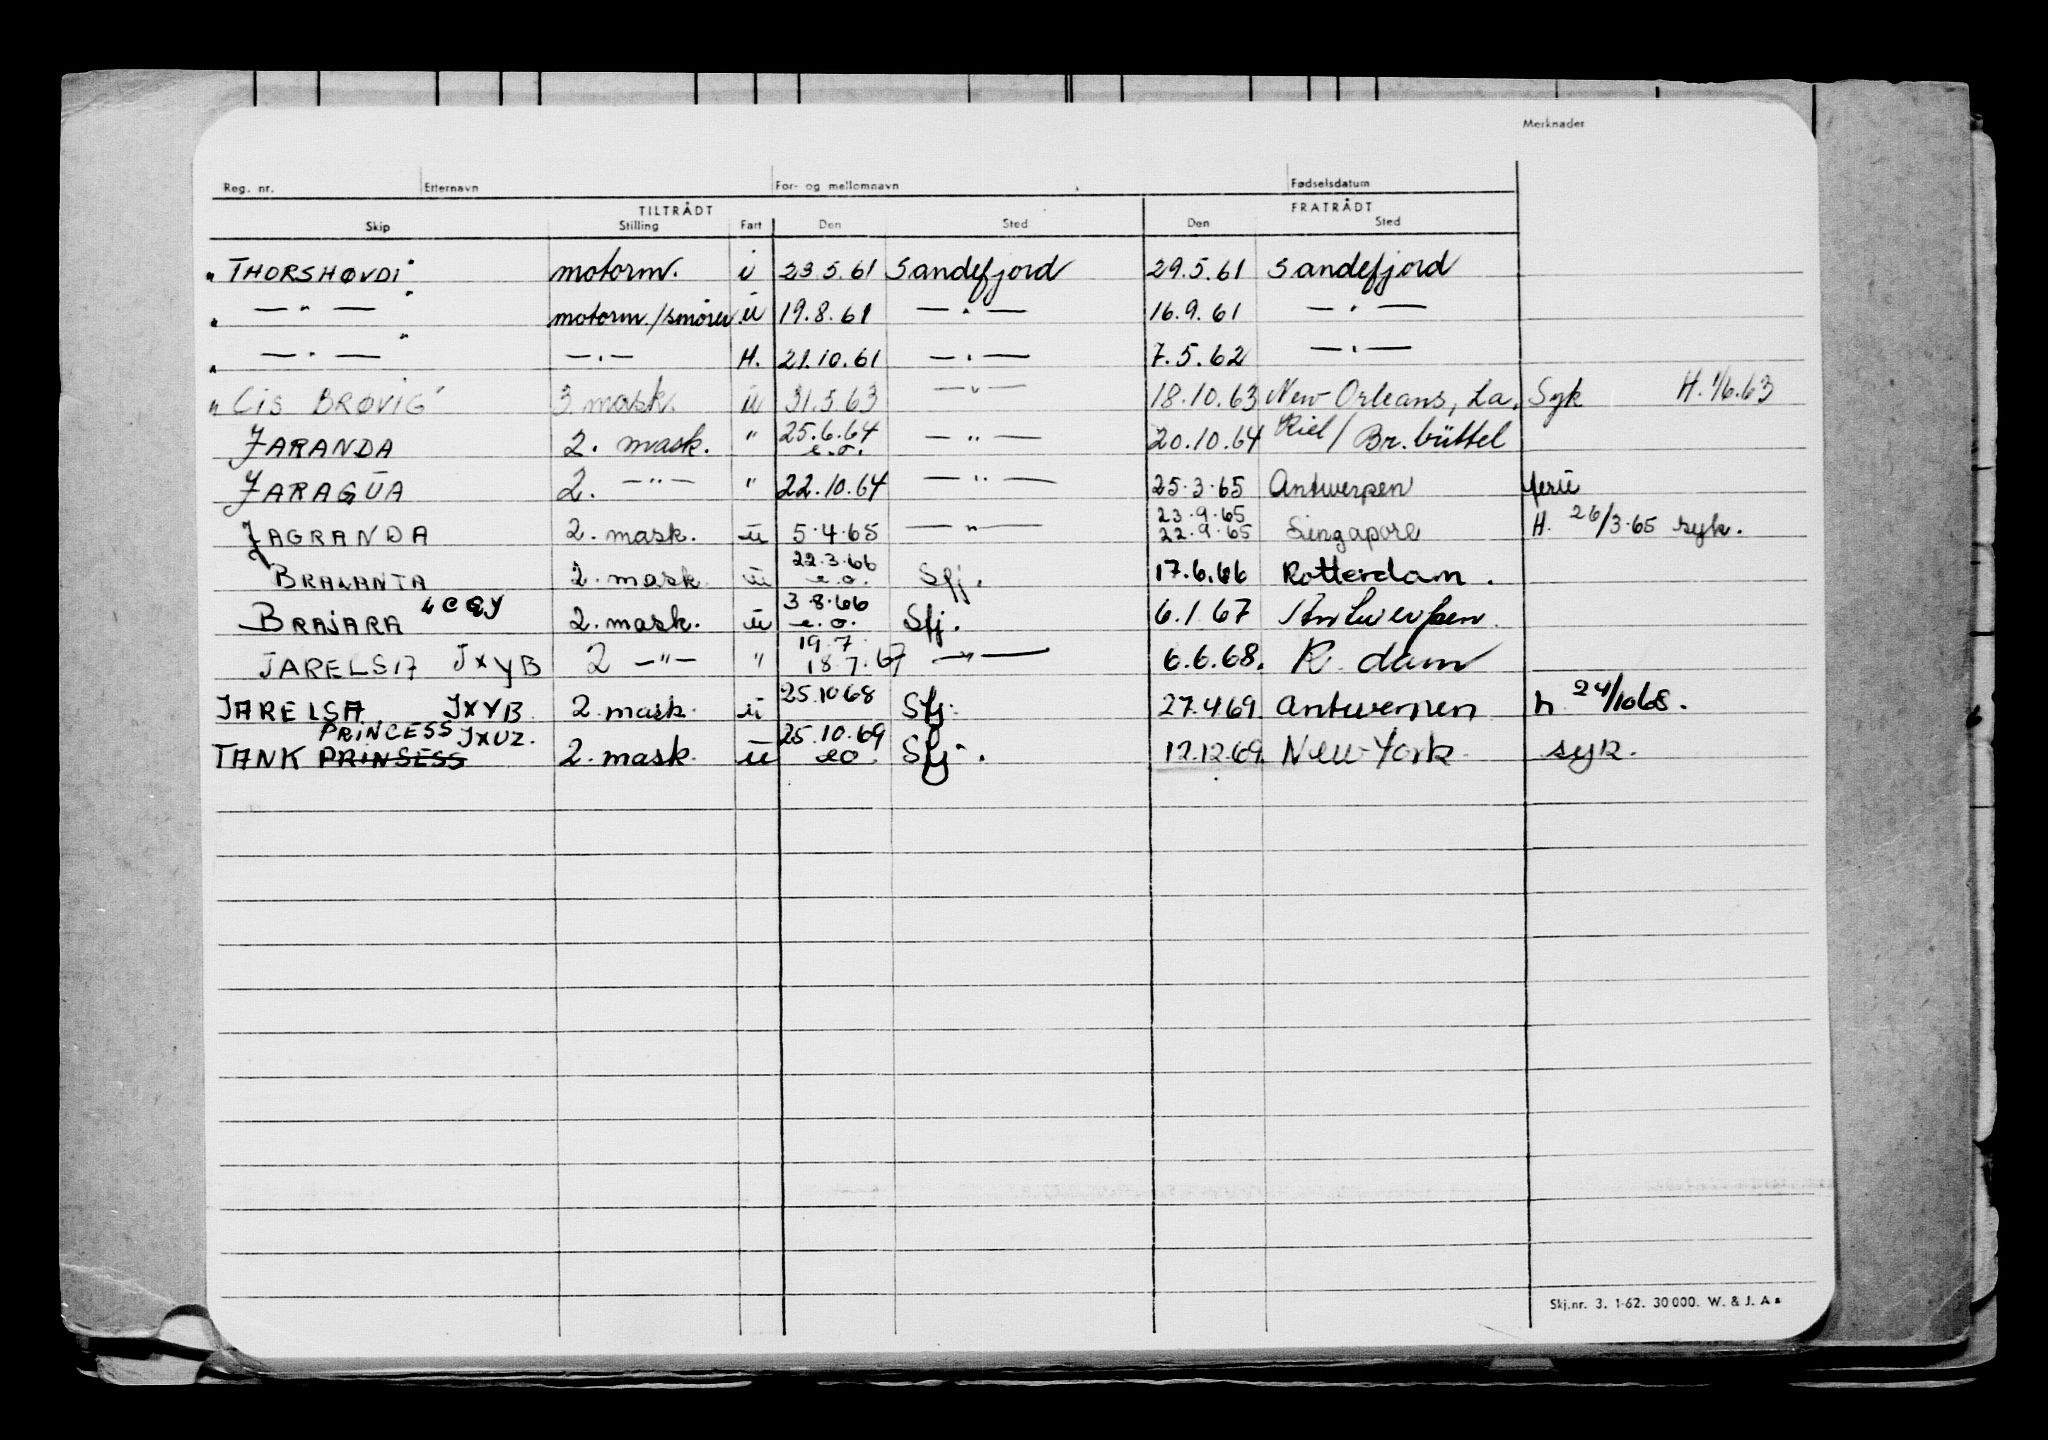 Merknader
Reg. nr. Etternavn For- og mellomnavn Fødselsdatum
TILTRÅDT FRATRÅDT
Skip Stilling Fart Den Sted Den Sted
"THORSHØVDI" motorm. ü 23.5.61 Sandefjord 29.5.61 Sandefjord
" — " — " motorm./smører ü 19.8.61 — " — 16.9.61 — " —
" — " — " — " — H. 21.10.61 — " — 7.5.62 — " —
"CIS BRØVIG" 3 mask. ü 31.5.63 — " — 18.10.63 New Orleans, La. Syk H. 1/6.63
JARANDA 2. mask. " 25.6.64 e.o. — " — 20.10.64 Kiel/Br.büttel
JARAGUA 2. — " — " 22.10.64 — " — 25.3.65 Antwerpen ferie
JAGRANDA 2. mask. ü 5.4.65 — " — 23.9.65 22.9.65 Singapore H. 26/3.65 syk.
BRALANTA 2. mask. ü 22.3.66 e.o. Sfj. 17.6.66 Rotterdam.
BRAJARA 2. mask. ü 3.8.66 e.o. Sfj. 6.1.67 Antwerpen.
JXYB 2 — " — " 19.7 18.7.67 — " — 6.6.68. R.dam
JARELSA JXYB 2. mask. ü 25.10.68 Sfj. 27.4.69. Antwerpen h 24/10.68.
PRINCESS JXUZ.
TANK PRINSESS 2. mask. ü 25.10.69 eo. Sfj. 12.12.69. New York syk.
Skj.nr. 3. 1-62. 30000. W. & J. A s